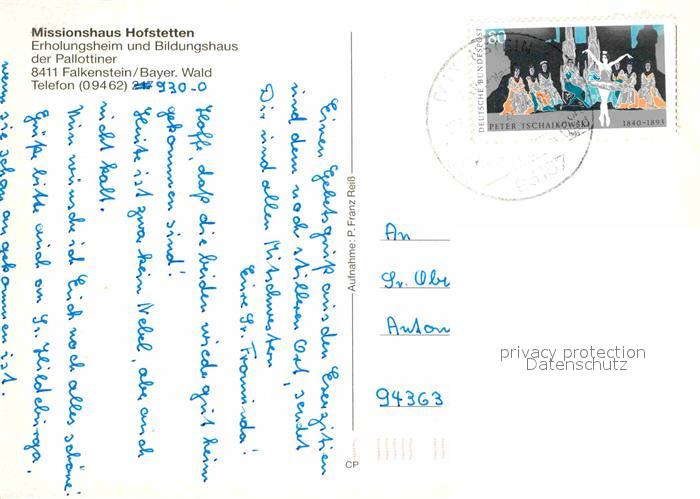 Missionshaus Hofstetten
Erholungsheim und Bildungshaus
der Pallottiner
8411 Falkenstein/Bayer. Wald
Telefon (09462) 930-0
Einen Gebetsgruß aus den Exerzitien
und dem noch stilleren Ort, sendet
Dir und allen Mitschwestern
Eure Sr. 
Hoffe, daß die beiden wieder gut heim
gekommen sind!
Heute ist zwar kein Nebel, aber auch
nicht kalt.
Nun wünsche ich Euch noch alles schöne!
Grüße bitte auch an Sr. Hildebirga,
wenn sie schon angekommen ist.
Aufnahme: P. Franz Reiß
CP
80
DEUTSCHE BUNDESPOST
PETER TSCHAIKOWSKY 1840-1893
1993
An
Sr. Obe
Anton
94363
privacy protection
Datenschutz